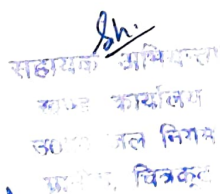 Sh.
सहायक अभियन्ता
खण्ड कार्यालय
उ०प्र० जल निगम
चित्रकूट